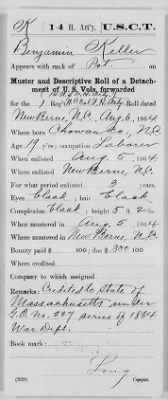 K 14 H. Art'y. U.S.C.T.
Benjamin Keller
Appears with rank of Pvt. on
Muster and Descriptive Roll of a Detach-
ment of U. S. Vols. forwarded
for the 1 Reg't N.C. Col'd H. Art'y. Roll dated
New Berne, N.C., Aug. 6, 1864
Where born Chowan Co., N.C.
Age 19 y'rs; occupation Laborer
When enlisted Aug. 5, 1864
Where enlisted New Berne, N.C.
For what period enlisted 3 years.
Eyes black; hair black
Complexion black; height 5 ft. in.
When mustered in Aug. 5, 1864
Where mustered in New Berne, N.C.
Bounty paid $ 100; due $ 300 100
Company to which assigned
Remarks: Credited to State of
Massachusetts under
G.O. No. 227 series of 1864
War Dept.
Book mark:
Long
(339) Copyist.